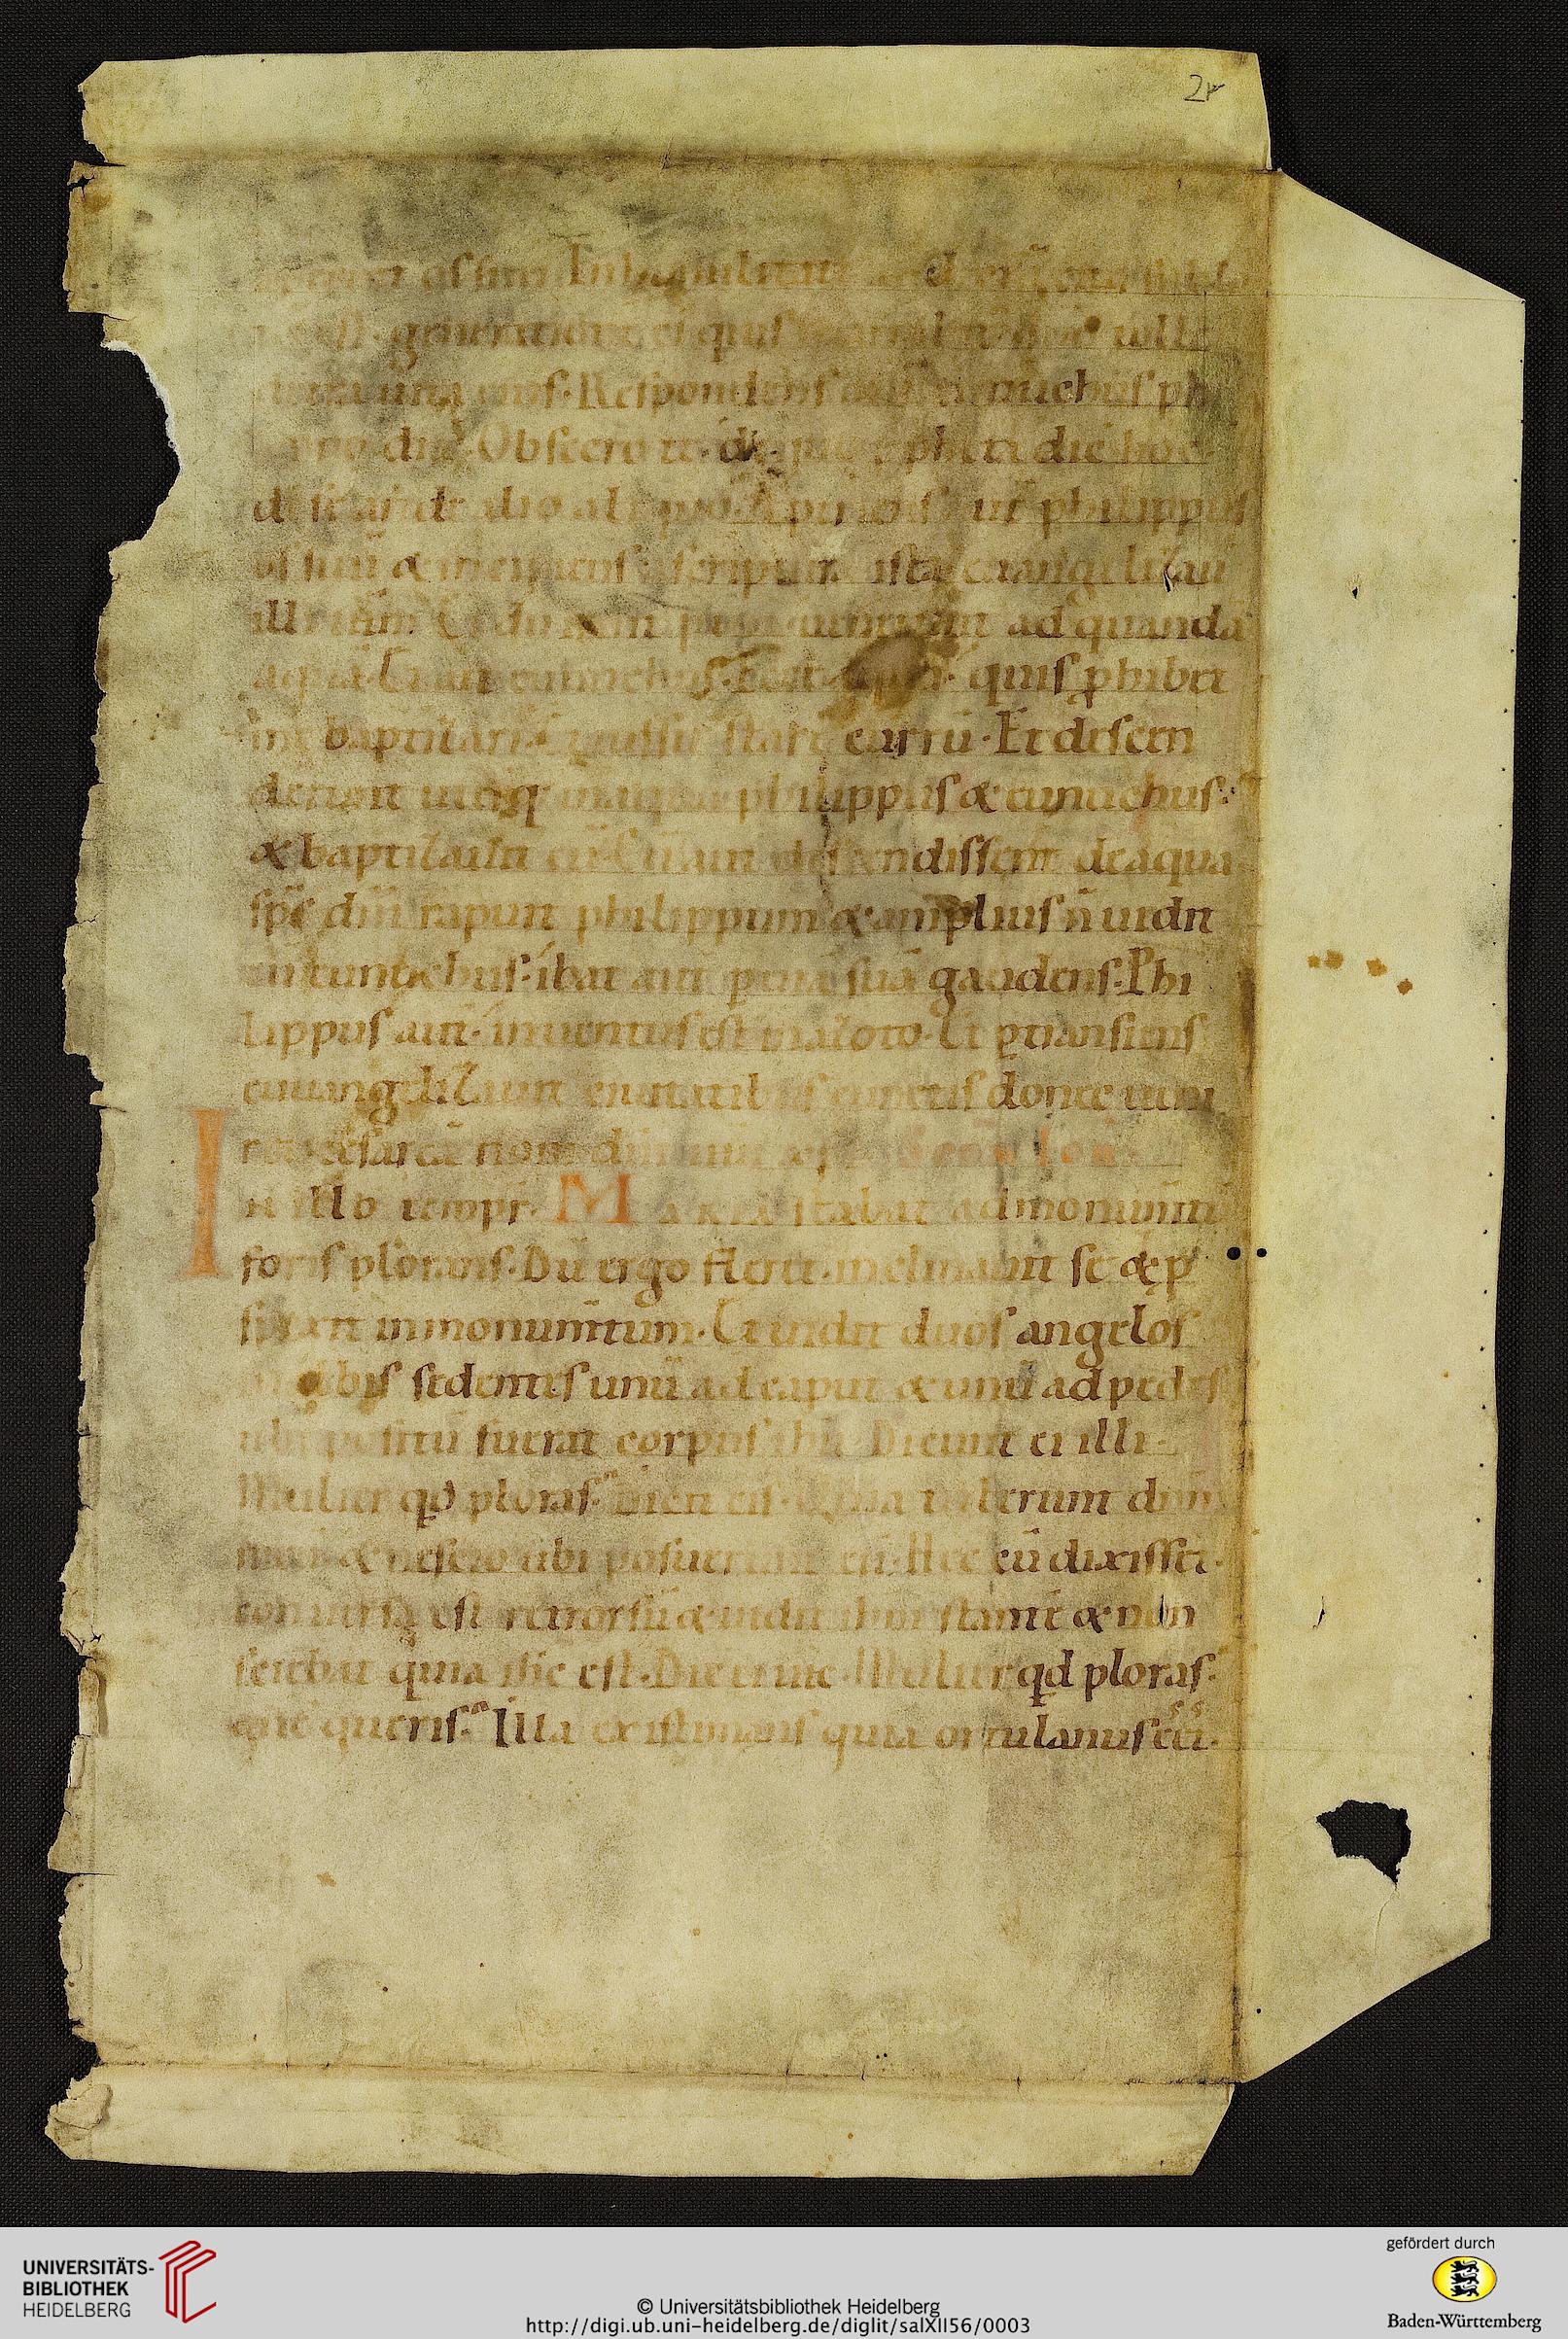 2r
os suum In humilitate
generatione eius quis
vita eius. Respondens aut eunuchus ph
Obsecro te de quo ppheta dicit hoc
de se an de alio aliquo. Aperiens aut philippus
os suū & incipiens a scriptura ista euangelizau
illi iħm. Et dū irent p uiā uenerunt ad quandā
aquā. Et ait eunuchus. Ecce aqua. quis ꝓhibet
me baptizari. Et iussit stare currū. Et descen
derunt uterq; in aquā philippus & eunuchus.
& baptizauit eū. Cū aut ascendissent de aqua
spc dnī rapuit philippum & amplius n̄ uidit
eum eunuchus. ibat aut p uiā suā gaudens. Phi
lippus aut inuentus est in azoto. Et ptransiens
euangelizauit ciuitatibus cunctis donec ueni
ret cesareā nom dnī
In illo tempr. Maria stabat ad monumtū
foris plorans. Dū ergo fleret. inclinauit se & p
spexit in monumtum. Et uidit duos angelos
in albis sedentes unū ad caput & unū ad pedes
ubi positū fuerat corpus ihu. Dicunt ei illi.
Mulier qd ploras. Dicit eis. Quia tulerunt dnm
meū & nescio ubi posuerunt eū. Hec cū dixisset.
conuersa est retrorsū & uidit ihm stante & non
sciebat quia ihc est. Dicit ei ihc. Mulier qd ploras.
que queris. Illa existimans quia ortulanus eet.
UNIVERSITÄTS-
BIBLIOTHEK
HEIDELBERG
© Universitätsbibliothek Heidelberg
http://digi.ub.uni-heidelberg.de/diglit/salXII56/0003
gefördert durch
Baden-Württemberg